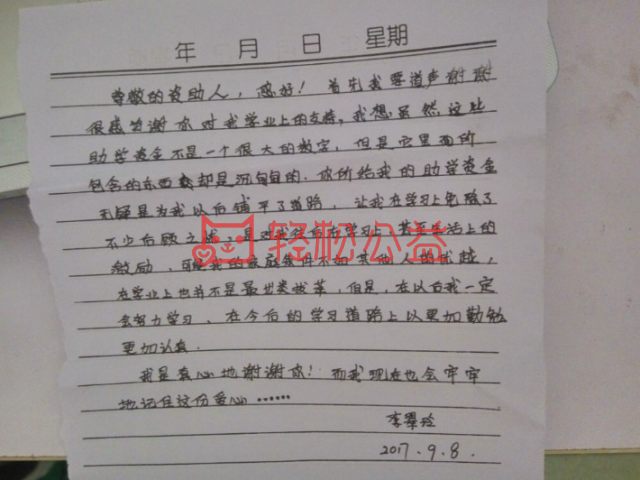 年 月 日 星期
尊敬的资助人，您好！首先我要道声谢谢
很感谢你对我学业上的支持。我想虽然这比
助学资金不是一个很大的数字，但是它里面所
包含的东西却是沉甸甸的。你所给我的助学资金
无疑是为我以后铺平了道路，让我在学习上免除了
不少后顾之忧，是对我今后在学习上，甚至生活上的
激励，可能我的家庭条件不如其他人的优越，
在学业上也并不是最出类拔萃，但是，在以后我一定
会努力学习、在今后的学习道路上以更加勤勉
更加认真.
我是真心地谢谢你！而我现在也会牢牢
地记住这份爱心……
李 玲
2017.9.8.
轻松公益